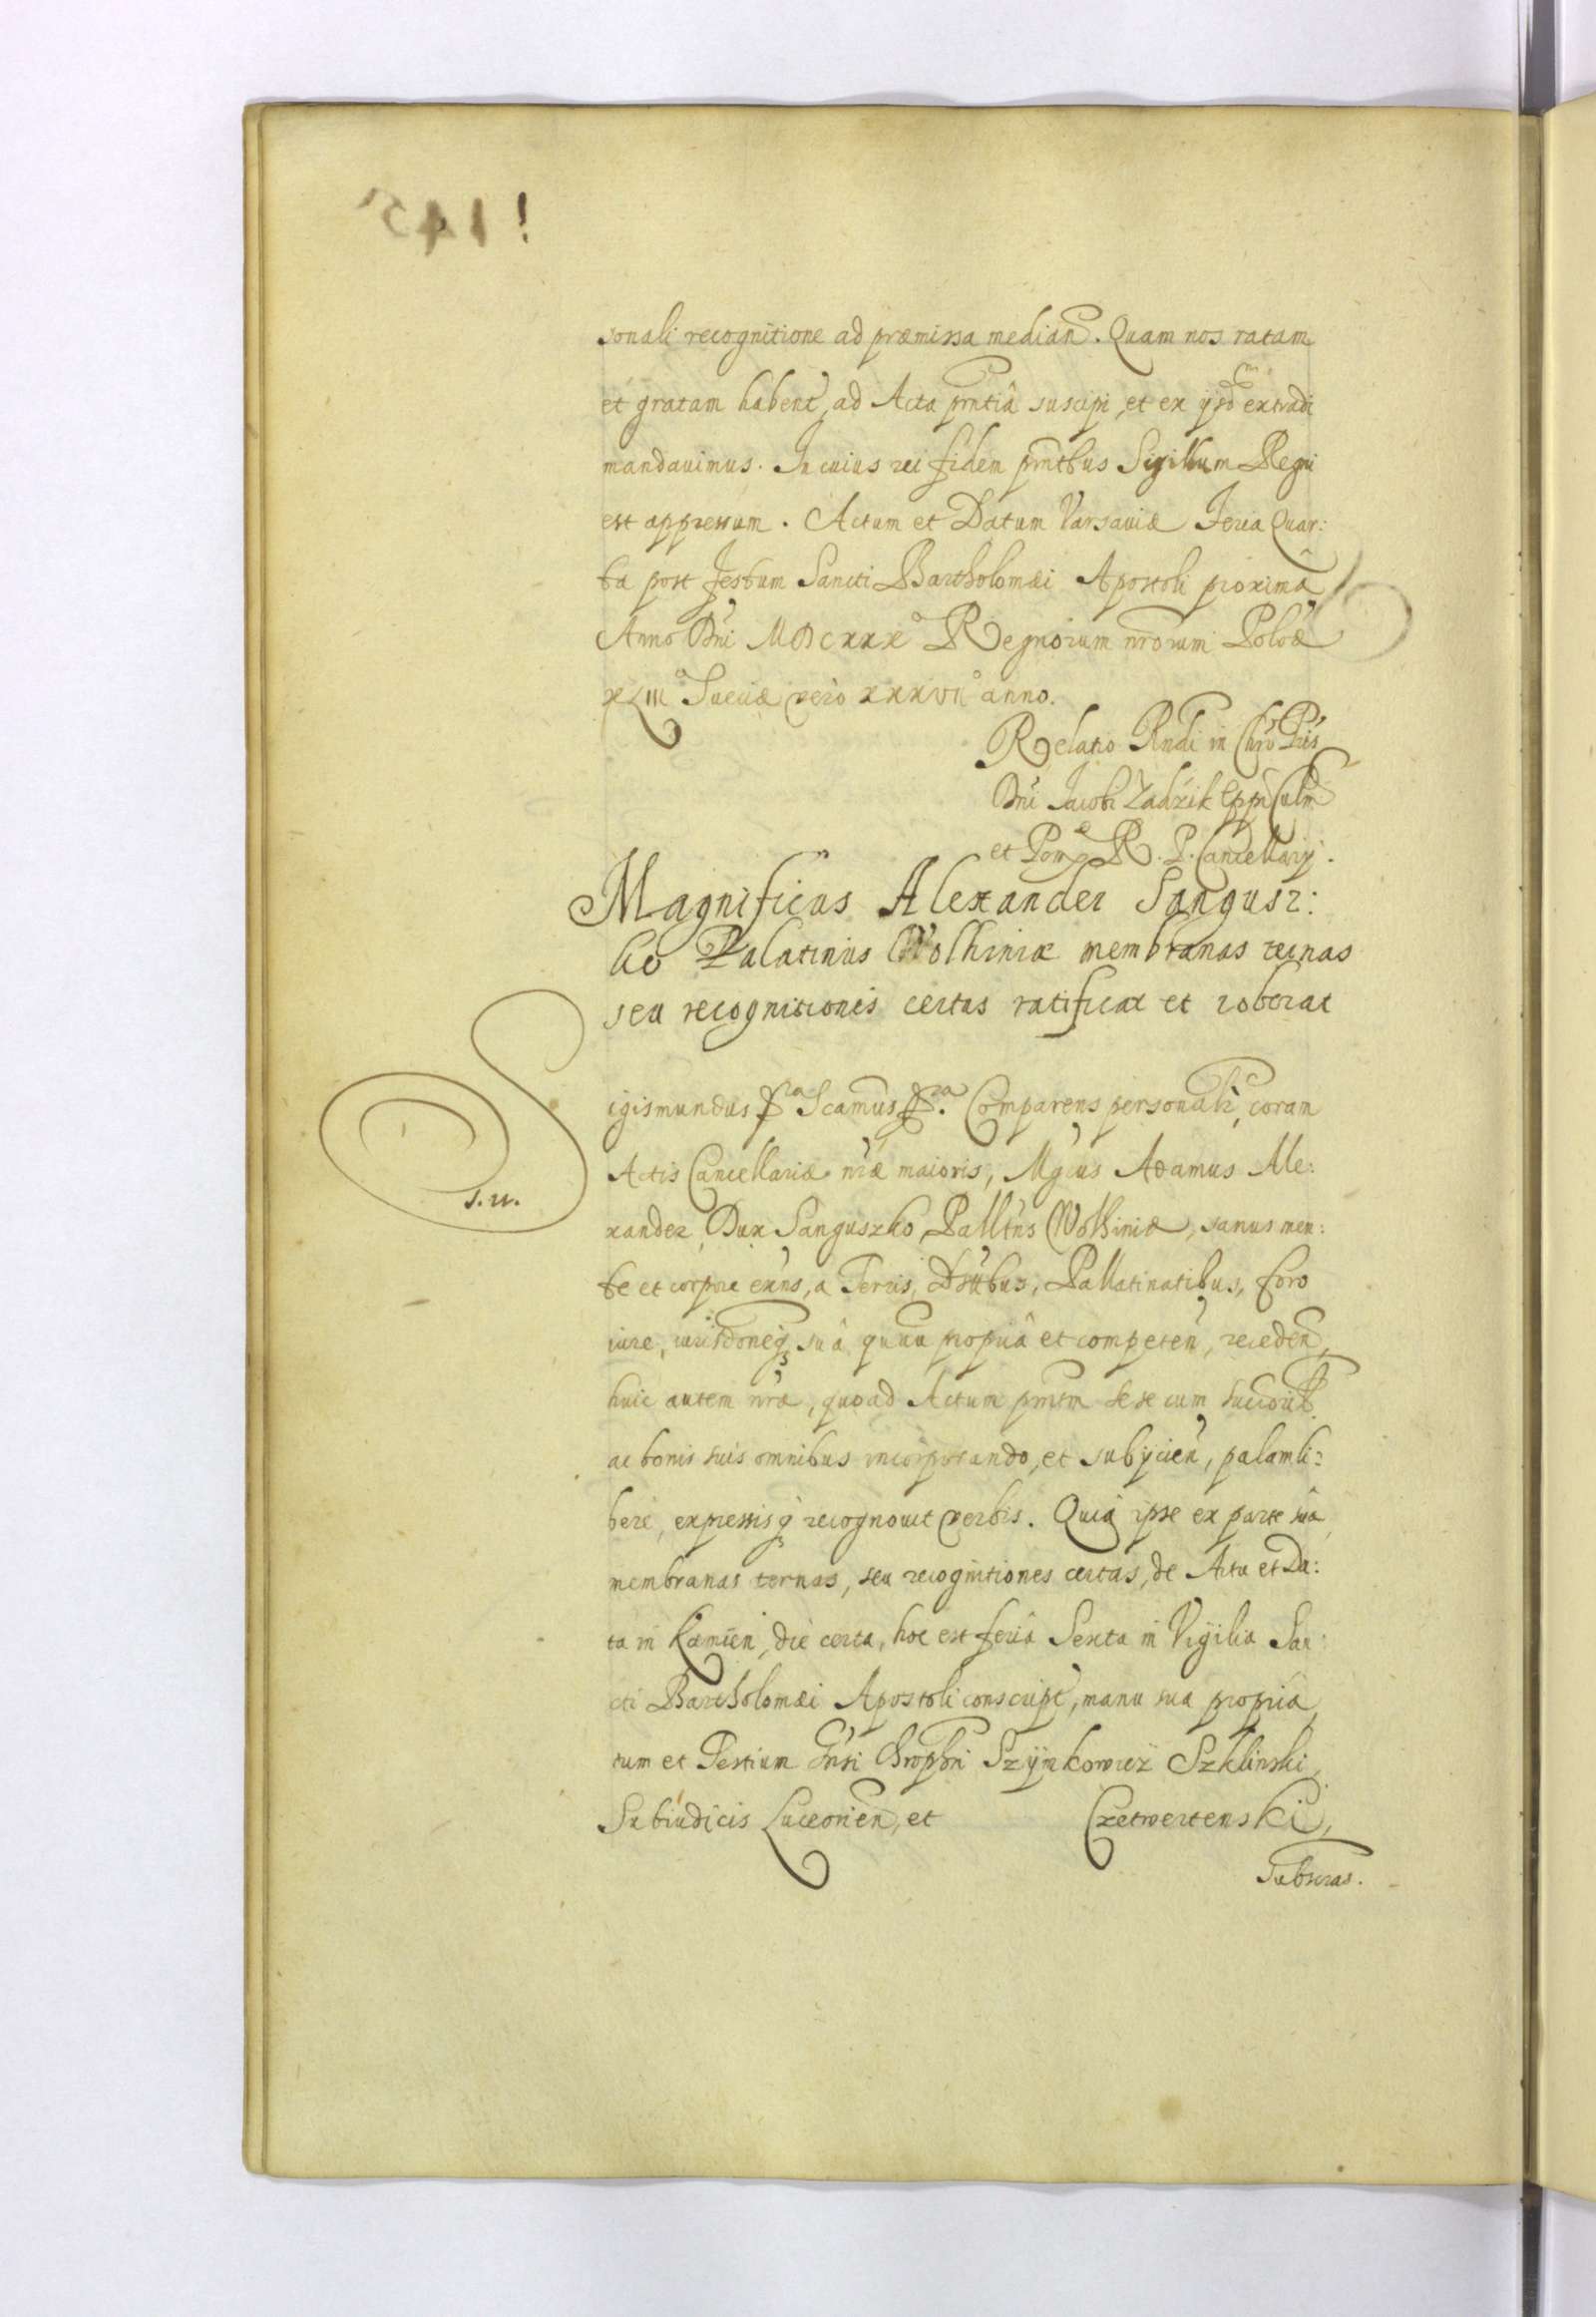 sonali recognitione ad præmissa median. Quam nos ratam
et gratam habent, ad Acta pntia suscipi, et ex ijsdem extradi
mandauimus. In cuius rei fidem pntbus Sigillum Regni
est appressum. Actum et Datum Varsauiæ Feria Quar:
ta post festum Sancti Bartholomæi Apostoli proximâ
Anno Dni MDCXXXº Regnorum nrorum Polōæ
XLIIIº Sueciæ vero XXXVIIº anno.
Relatio Rndi in Chro Pris
Dni Jacobi Zadzik Eppi Culm
et Pom. R. P. Cancellarij.
Magnificus Alexander Sangusz:
ko Palatinus Wolhiniæ membranas ternas
seu recognitionis certas ratificat et roborat
S
igismundus pra Scamus pra. Comparens personalr, coram
Actis Cancellariæ nræ maioris, Mgcus Adamus Ale:
xander, Dux Sanguszko, Pallins Wolhiniæ, sanus men:
te et corpore exns, a Terris, Dstbus, Pallatinatibus, foro
iure, iurisdoneq sua quauu propriâ et competen, receden,
huic autem nræ, quoad Actum pntm sese cum succoribs
ac bonis suis omnibus incorporando, et subijcien, palam li:
bere, expressisq recognouit verbis. Quia ipse ex parte sua
membranas ternas, seu recognitiones certas, de Actu et Da:
ta in Kamien, die certa, hoc est feriâ Sexta in Vigilia San:
cti Bartholomæi Apostoli conscript, manu sua propriâ
tum et Testium Gnsi Chrophri Szymkowicz Szklinski,
Subiudicis Luceorien, et Czetwertenski,
Subscras.
s. u.